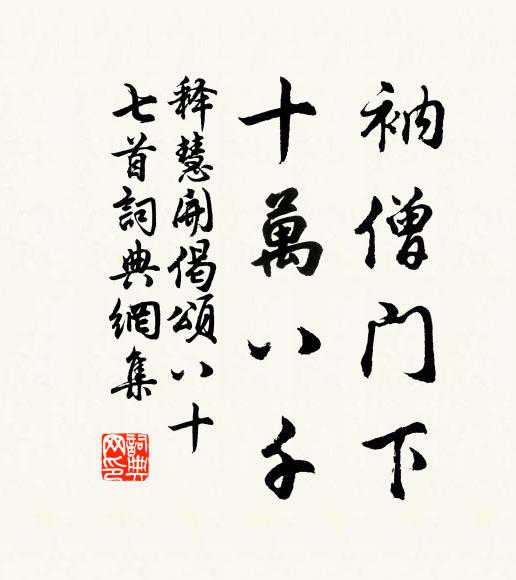 衲僧門下
十萬八千
释慧開偈頌八十
七首詞典網集
詞典網印